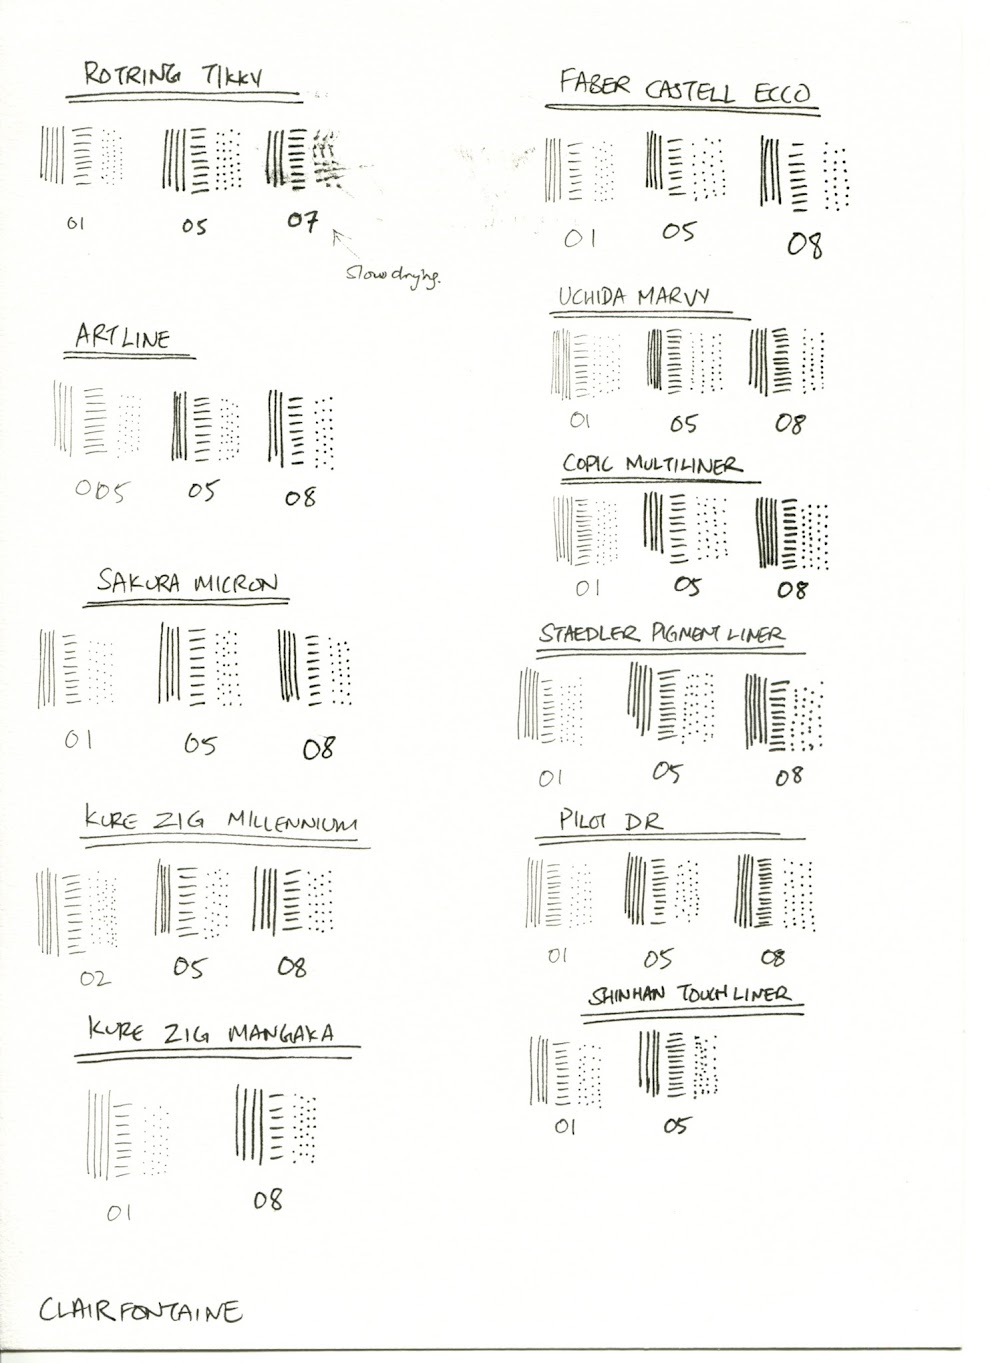 ROTRING TIKKY
01 05 07
Slow drying.
ARTLINE
005 05 08
SAKURA MICRON
01 05 08
KURE ZIG MILLENNIUM
02 05 08
KURE ZIG MANGAKA
01 08
CLAIRFONTAINE
FABER CASTELL ECCO
01 05 08
UCHIDA MARVY
01 05 08
COPIC MULTILINER
01 05 08
STAEDLER PIGMENT LINER
01 05 08
PILOT DR
01 05 08
SHINHAN TOUCH LINER
01 05